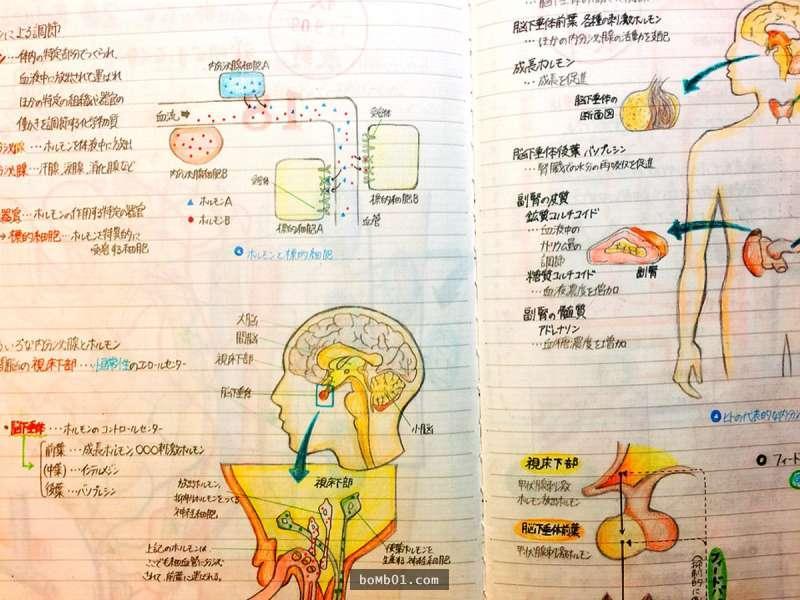 による調節
ン…体内の特定部分でつくられ、
血液中に放出されて運ばれ
ほかの特定の組織や器官の
働きを調節する化学物質
分泌腺…ホルモンを体液中に放出
分泌腺…汗腺、涙腺、消化腺など
器官…ホルモンの作用する特定の器官
→標的細胞…ホルモンを特異的に
受容する細胞
内分泌腺細胞A
血流
受容体
内分泌腺細胞B
受容体
▲ホルモンA
●ホルモンB
標的細胞A
血管
標的細胞B
ホルモンと標的細胞
いろいろな内分泌腺とホルモン
間脳の視床下部…恒常性のコントロールセンター
・脳下垂体…ホルモンのコントロールセンター
前葉…成長ホルモン、○○○刺激ホルモン
(中葉)…インテルメジン
後葉…バソプレシン
大脳
間脳
視床下部
脳下垂体
小脳
視床下部
放出ホルモン、
抑制ホルモンをつくる
神経細胞
上記のホルモンは、
ここで毛細血管に分泌
されて、前葉に運ばれる。
後葉ホルモンを
生産する神経細胞
脳下垂体前葉 各種の刺激ホルモン
…ほかの内分泌腺の活動を支配
成長ホルモン
…成長を促進
脳下垂体の
断面図
脳下垂体後葉 バソプレシン
…腎臓での水分の再吸収を促進
副腎の皮質
鉱質コルチコイド
…血液中の
ナトリウム量の
調節
糖質コルチコイド
…血液濃度を増加
副腎
副腎の髄質
アドレナリン
…血糖濃度を増加
ヒトの代表的な内分
視床下部
甲状腺刺激
ホルモン放出ホルモン
脳下垂体前葉
甲状腺刺激ホルモン
フィード
フィードバ
boMb01.com